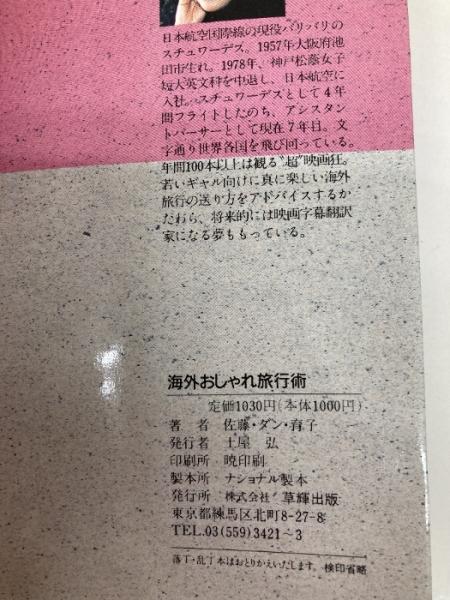 日本航空国際線の現役バリバリの
スチュワーデス。1957年大阪府池
田市生れ。1978年、神戸松蔭女子
短大英文科を中退し、日本航空に
入社。スチュワーデスとして4年
間フライトしたのち、アシスタン
トパーサーとして現在7年目。文
字通り世界各国を飛び回っている。
年間100本以上は観る〝超〟映画狂。
若いギャル向けに真に楽しい海外
旅行の送り方をアドバイスするか
たわら、将来的には映画字幕翻訳
家になる夢ももっている。
海外おしゃれ旅行術
定価1030円(本体1000円)
著 者 佐藤・ダン・育子
発行者 土屋 弘
印刷所 暁印刷
製本所 ナショナル製本
発行所 株式会社 草輝出版
東京都練馬区北町8-27-8
TEL.03(559)3421〜3
落丁・乱丁本はおとりかえいたします。 検印省略